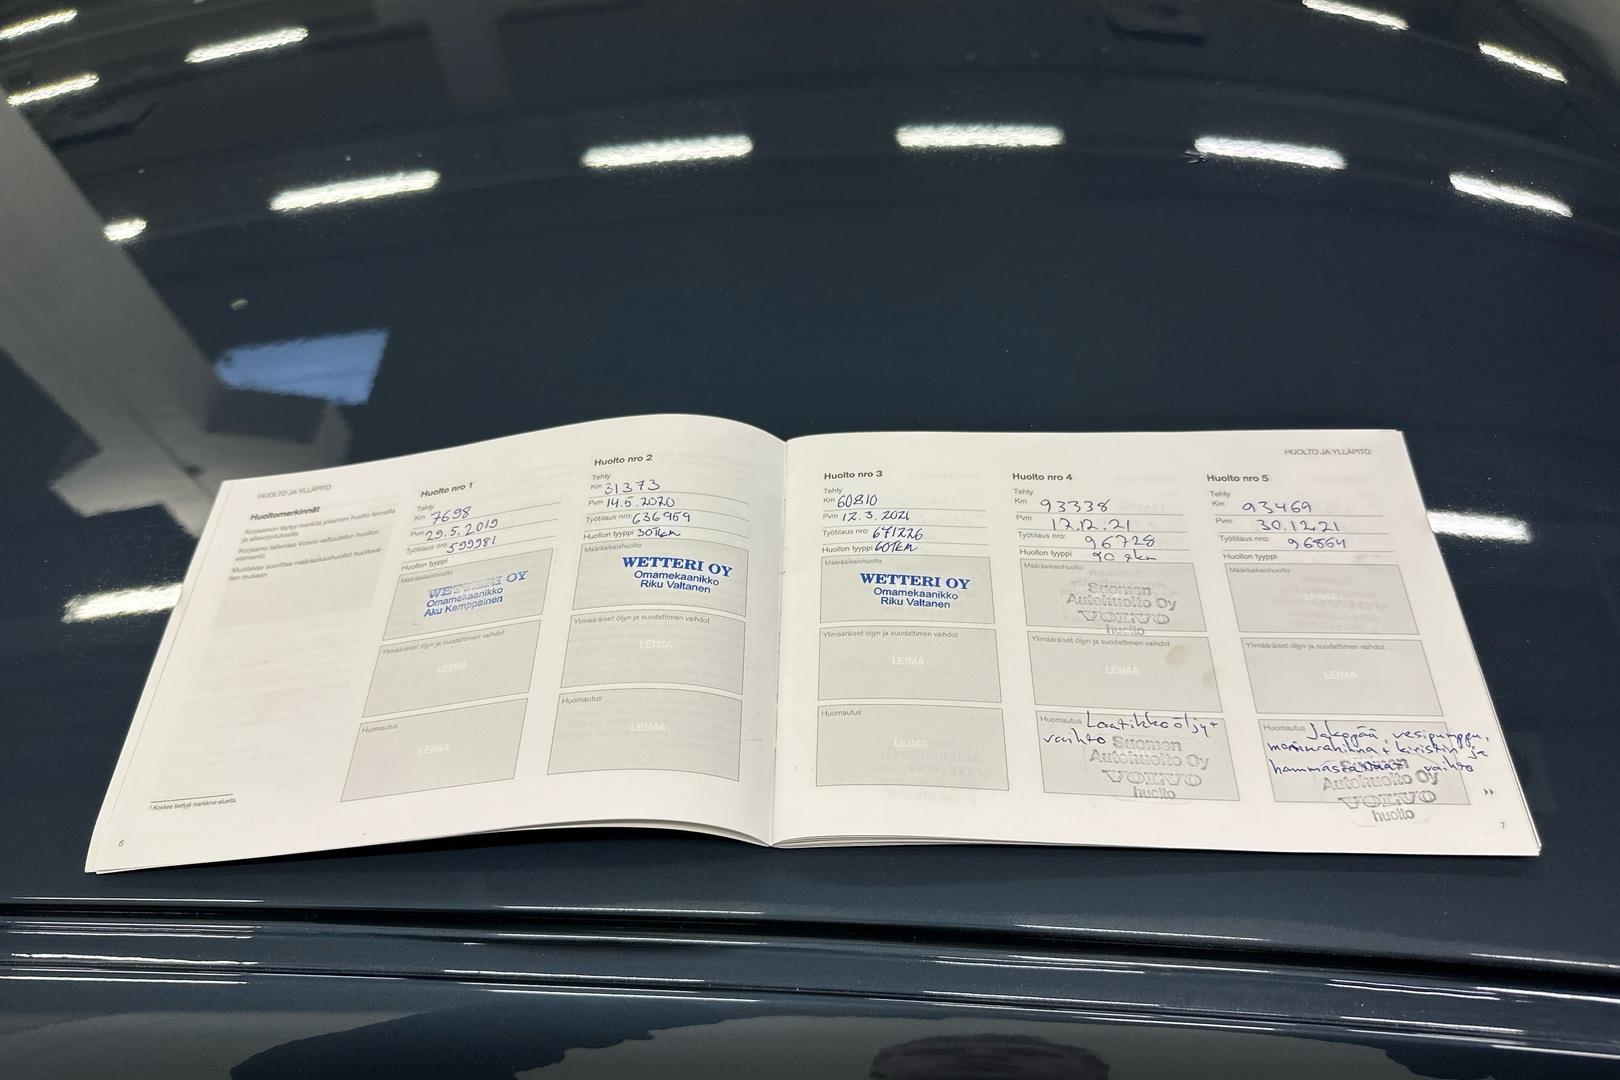 HUOLTO JA YLLÄPITO
Huoltomerkinnät
Korjaamon täytyy merkitä jokainen huolto leimalla
ja allekirjoituksella.
Korjaamo tallentaa Volvon valtuutetun huollon
Muistakaa suorittaa määräaikaishuollot
mukaan.
1 Koskee tiettyjä markkina-alueita.
6
Huolto nro 1
Tehty
Km 7698
Pvm 29.5.2019
Työtilaus nro: 599981
Huollon tyyppi
Määräaikaishuolto
WETTERI OY
Omamekaanikko
Aku Kemppainen
Ylimääräiset öljyn ja suodattimen vaihdot
LEIMA
Huomautus
LEIMA
Huolto nro 2
Tehty
Km 31373
Pvm 14.5.2020
Työtilaus nro: 636959
Huollon tyyppi 30tkm
Määräaikaishuolto
WETTERI OY
Omamekaanikko
Riku Valtanen
Ylimääräiset öljyn ja suodattimen vaihdot
LEIMA
Huomautus
LEIMA
Huolto nro 3
Tehty
Km 60810
Pvm 12.3.2021
Työtilaus nro: 671226
Huollon tyyppi 60tkm
Määräaikaishuolto
WETTERI OY
Omamekaanikko
Riku Valtanen
Ylimääräiset öljyn ja suodattimen vaihdot
LEIMA
Huomautus
LEIMA
Huolto nro 4
Tehty
Km 93338
Pvm 17.12.21
Työtilaus nro: 96728
Huollon tyyppi 90 tkm
Määräaikaishuolto
Suomen
Autohuolto Oy
VOLVO
huolto
Ylimääräiset öljyn ja suodattimen vaihdot
LEIMA
Huomautus Laatikkoöljyt
vaihto
Suomen
Autohuolto Oy
VOLVO
huolto
HUOLTO JA YLLÄPITO
Huolto nro 5
Tehty
Km 93469
Pvm 30.12.21
Työtilaus nro: 96864
Huollon tyyppi
Määräaikaishuolto
LEIMA
Ylimääräiset öljyn ja suodattimen vaihdot
LEIMA
Huomautus Jakopää, vesipumppu,
moniurahihna + kiristin ja
vaihto
Suomen
Autohuolto Oy
VOLVO
huolto
7